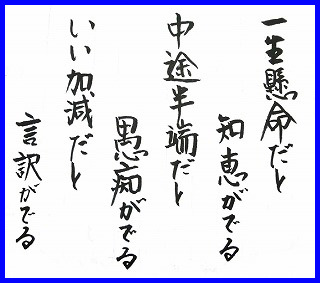 一生懸命だと
知恵がでる
中途半端だと
愚痴がでる
いい加減だと
言訳がでる